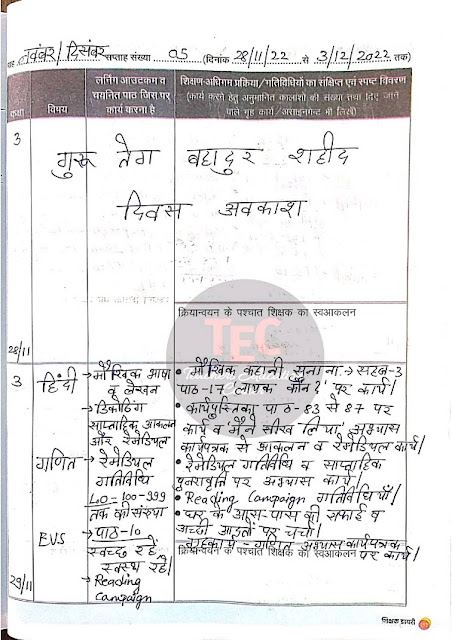 माह नवंबर/दिसंबर सप्ताह संख्या 05 (दिनांक 28/11/22 से 3/12/2022 तक)
कक्षा
विषय
लर्निंग आउटकम व
चयनित पाठ जिस पर
कार्य करना है
शिक्षण-अधिगम प्रक्रिया/गतिविधियों का संक्षिप्त एवं स्पष्ट विवरण
(कार्य करने हेतु अनुमानित कालांशों की संख्या तथा दिए जाने
वाले गृह कार्य/असाइनमेन्ट भी लिखें)
3
गुरू तेग बहादुर शहीद
दिवस अवकाश
क्रियान्वयन के पश्चात शिक्षक का स्वआकलन
28/11
TEC
3
हिंदी
→ मौखिक भाषा
व लेखन
→ डिकोडिंग
साप्ताहिक आकलन
और रेमेडियल
गणित
→ रेमेडियल
गतिविधि
LO-100-999
तक की संख्या
EVS
→ पाठ-10
स्वच्छ रहें
स्वस्थ रहें।
→ Reading
Campaign
• मौखिक कहानी सुनाना → सहज-3
पाठ-17 लायक कौन?' पर कार्य।
• कार्यपुस्तिका पाठ-83 से 87 पर
कार्य व 'मैंने सीख लिया' अभ्यास
कार्यपत्रक से आकलन व रेमेडियल कार्य।
• रेमेडियल गतिविधि व साप्ताहिक
पुनरावृत्ति पर अभ्यास कार्य।
• Reading Campaign गतिविधियाँ।
• घर के आस-पास की सफाई व
अच्छी आदतों पर चर्चा।
गृहकार्य - गणित अभ्यास कार्यपत्रक
पर कार्य।
क्रियान्वयन के पश्चात शिक्षक का स्वआकलन
29/11
शिक्षक डायरी